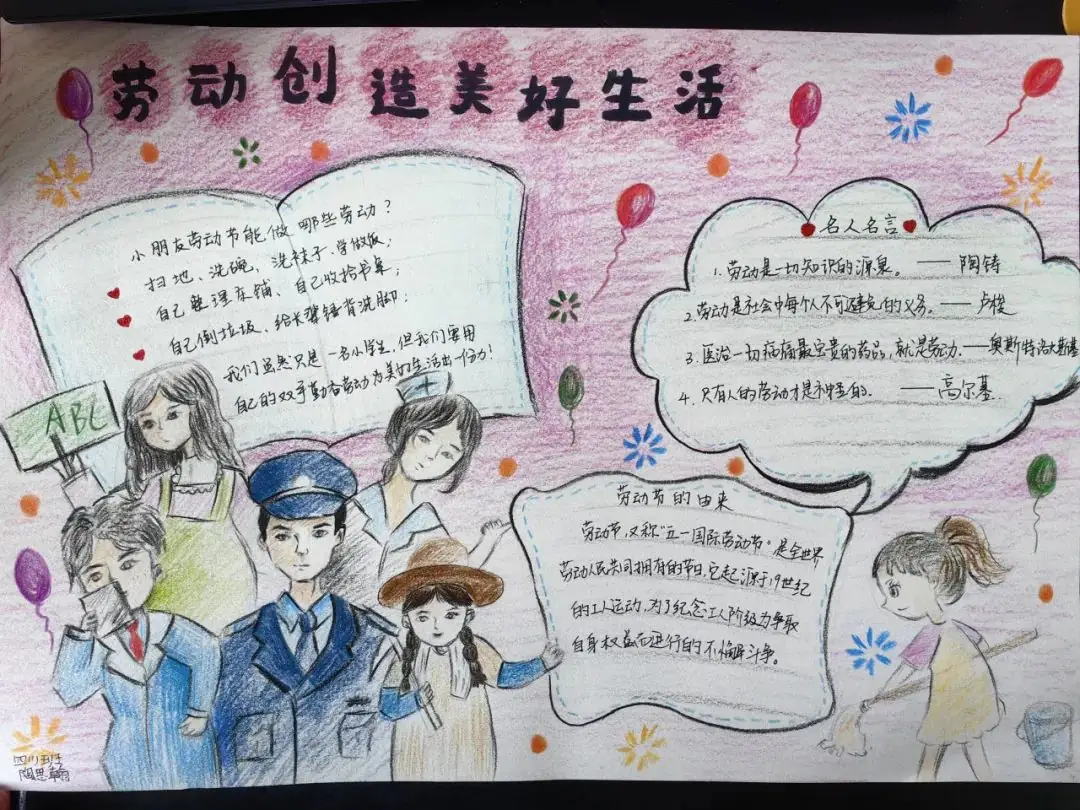 劳动创造美好生活
小朋友劳动节能做哪些劳动？
扫地、洗碗，洗袜子、学做饭；
自己整理床铺、自己收拾书桌；
自己倒垃圾、给长辈锤背洗脚；
我们虽然只是一名小学生，但我们要用
自己的双手勤奋劳动为美好生活出一份力！
ABC
名人名言
1.劳动是一切知识的源泉。——陶铸
2.劳动是社会中每个人不可避免的义务。——卢梭
3.医治一切病痛最宝贵的药品，就是劳动.——奥斯特洛夫斯基
4.只有人的劳动才是神圣的.——高尔基.
劳动节的由来
劳动节，又称"五一国际劳动节"是全世界
劳动人民共同拥有的节日，它起源于19世纪
的工人运动，为了纪念工人阶级为争取
自身权益而进行的不懈斗争。
四(1)班
陶思翰